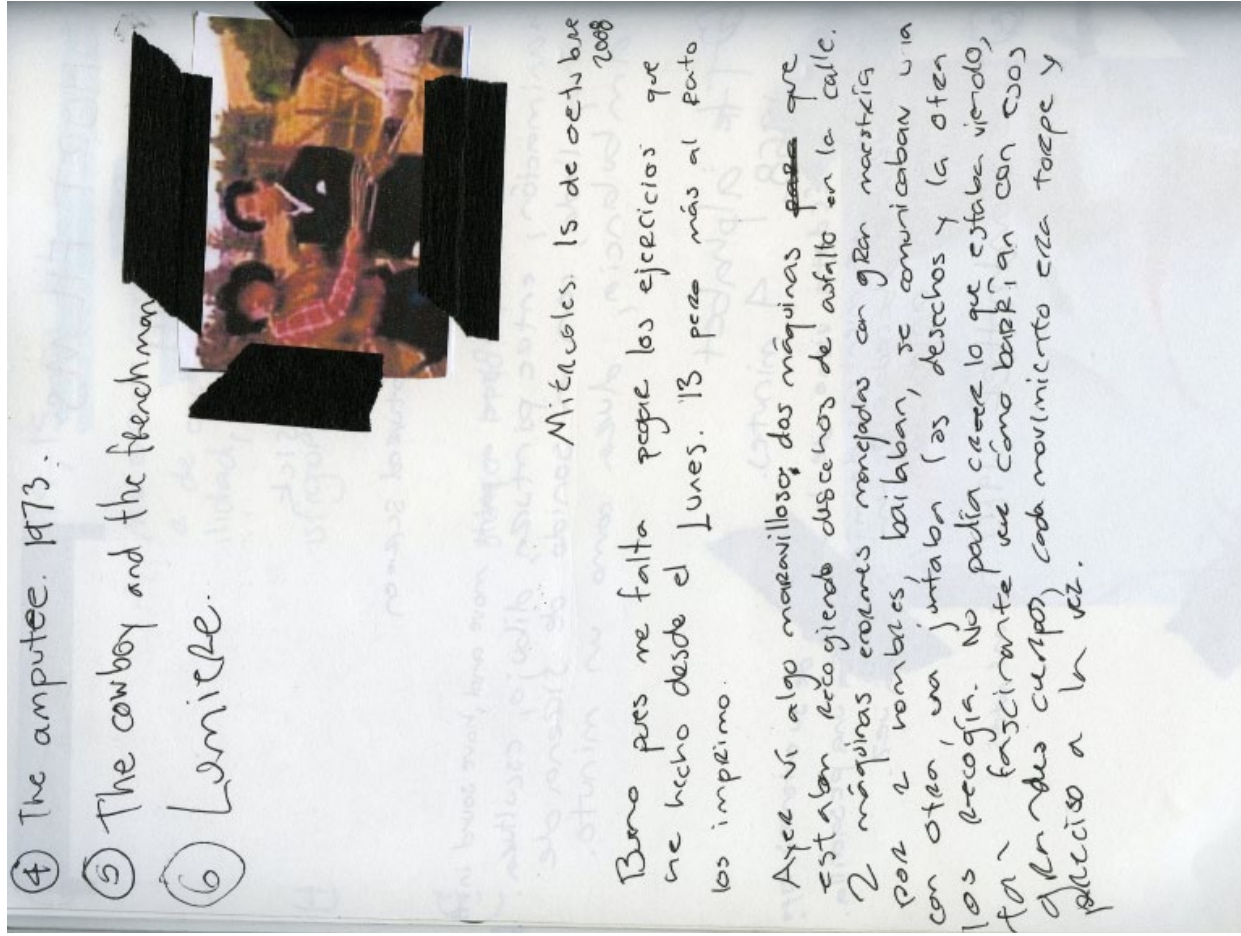 ④ The amputee. 1973.
⑤ The cowboy and the frenchman
⑥ Lumiere.
Miércoles 15 de octubre
2008
Bueno pues me falta pegar los ejercicios que
he hecho desde el Lunes. 13 pero más al rato
los imprimo.
Ayer vi algo maravilloso, dos máquinas para que
estaban recogiendo desechos de asfalto en la calle.
2 máquinas enormes manejadas con gran maestría
por 2 hombres, bailaban, se comunicaban una
con otra, una juntaba los desechos y la otra
los recogía. No podía creer lo que estaba viendo,
fascinante ver cómo barrían con esos
grandes cuerpos, cada movimiento era torpe y
preciso a la vez.